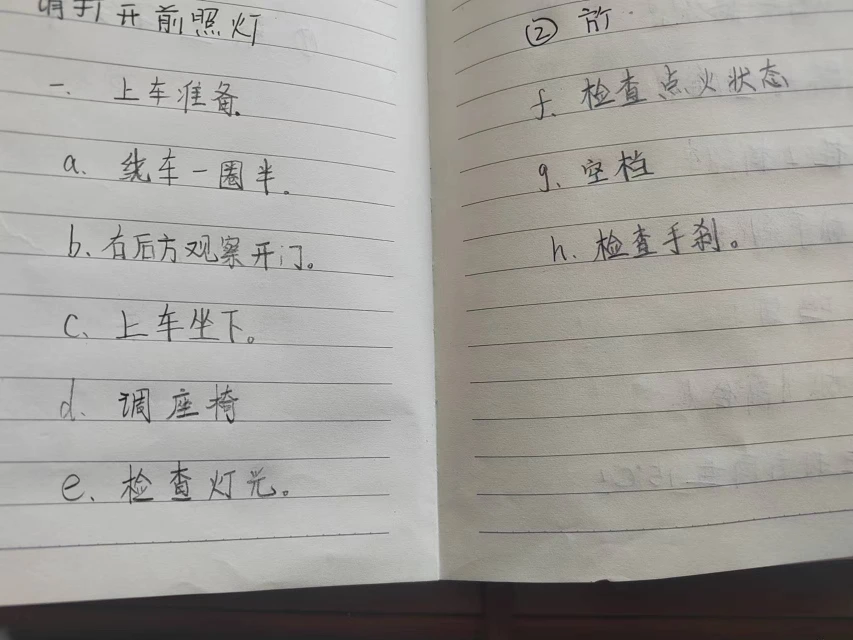 请打开前照灯
一、上车准备.
a. 绕车一圈半.
b、右后方观察开门。
c、上车坐下。
d、调座椅
e、检查灯光。
②
f、检查点火状态
g、空档
h、检查手刹。